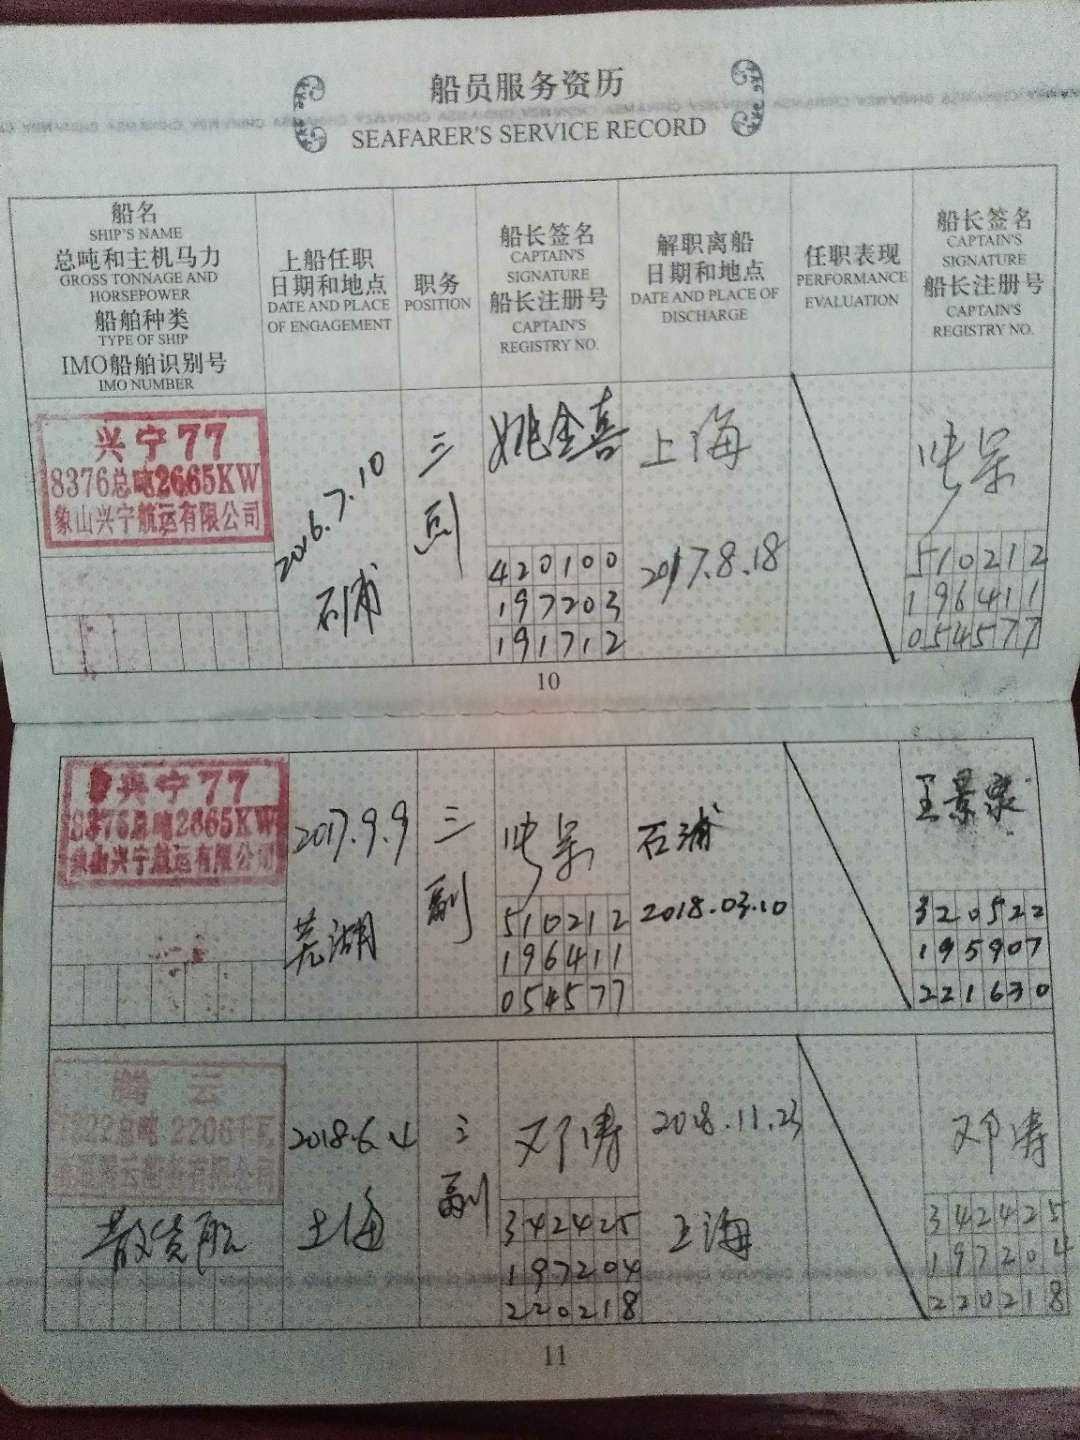 船员服务资历
SEAFARER'S SERVICE RECORD
船名
SHIP'S NAME
总吨和主机马力
GROSS TONNAGE AND
HORSEPOWER
船舶种类
TYPE OF SHIP
IMO船舶识别号
IMO NUMBER
上船任职
日期和地点
DATE AND PLACE
OF ENGAGEMENT
职务
POSITION
船长签名
CAPTAIN'S
SIGNATURE
船长注册号
CAPTAIN'S
REGISTRY NO.
解职离船
日期和地点
DATE AND PLACE OF
DISCHARGE
任职表现
PERFORMANCE
EVALUATION
船长签名
CAPTAIN'S
SIGNATURE
船长注册号
CAPTAIN'S
REGISTRY NO.
兴宁77
8376总吨2665KW
象山兴宁航运有限公司
2016.7.10
石浦
三
副
姚金喜
420100
197203
191712
上海
2017.8.18
510212
196411
054577
10
兴宁77
8376总吨2665KW
象山兴宁航运有限公司
2017.9.9
芜湖
三
副
510212
196411
054577
石浦
2018.03.10
王景泉
320522
195907
221630
腾云
总吨 2206千瓦
腾云船务有限公司
散货船
2018.6.4
上海
三
副
邓涛
342425
197204
220218
2018.11.23
上海
邓涛
342425
197204
220218
11